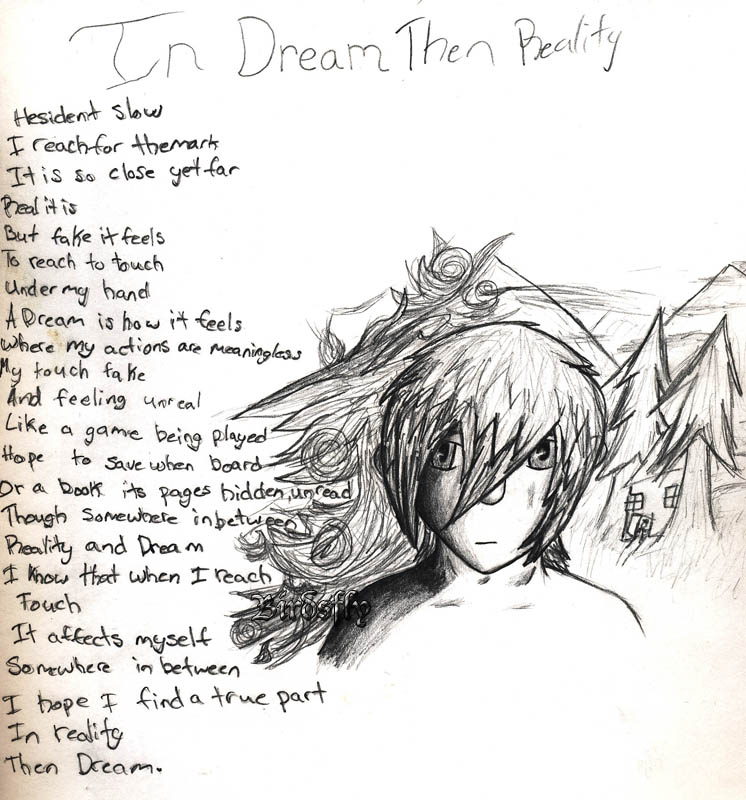 In Dream Then Reality
Hesident slow
I reach for the mark
It is so close yet far
Real it is
But fake it feels
To reach to touch
Under my hand
A Dream is how it feels
Where my actions are meaningless
My touch fake
And feeling unreal
Like a game being played
Hope to save when board
Or a book its pages hidden, unread
Though Somewhere inbetween
Reality and Dream
I know that when I reach
Touch
It affects myself
Somewhere in between
I hope I find a true part
In reality
Then Dream.
Birdsfly